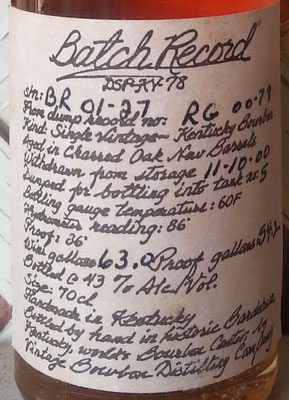 Batch Record
DSP-KY-78
s/n: BR 01-27
From dump record no: RG 00-79
Kind: Single Vintage ~ Kentucky Bourbon
Aged in Charred Oak New Barrels
Withdrawn from storage 11-10-00
Dumped for bottling into tank no: 5
Bottling gauge temperature: 60F
Hydrometer reading: 86°
Proof: 86°
Wine gallons 63.0 Proof gallons 54.2
Bottled @ 43 % Alc/Vol.
Size: 70cl
Handmade in Kentucky
Bottled by hand in historic Bardstown,
Kentucky, world's Bourbon Center, by
Vintage Bourbon Distilling Company